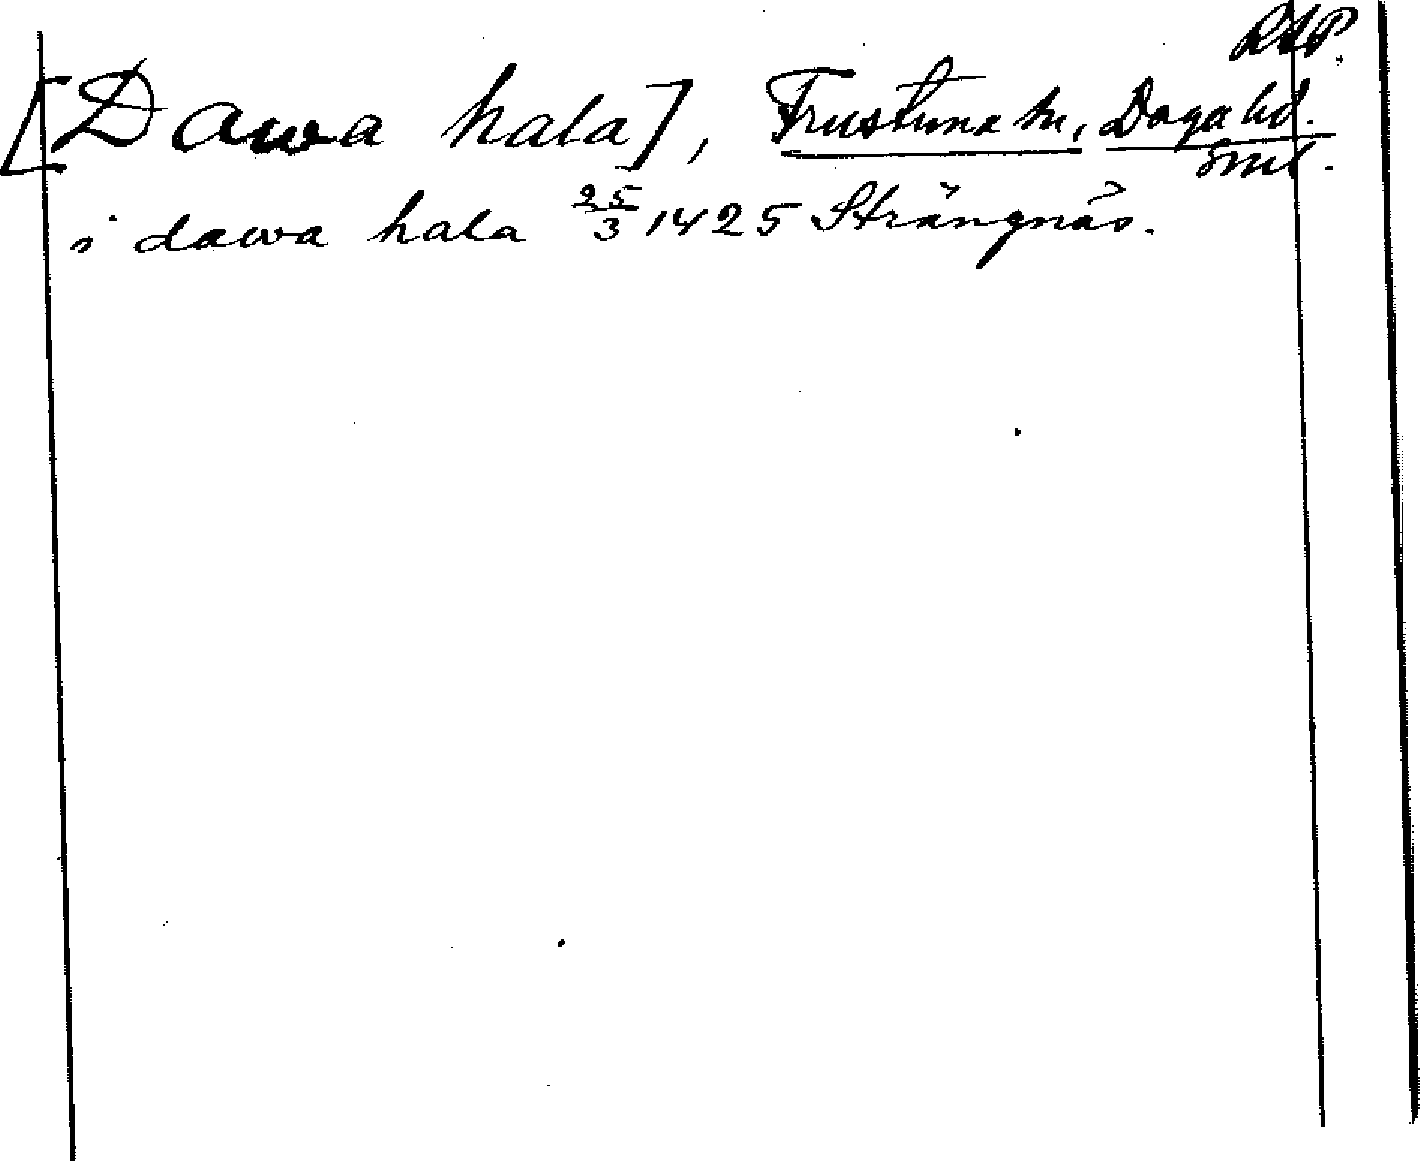 RAP.
[Dawa hala], Frustuna sn, Daga hd.
Sml.
i dawa hala 25/3 1425 Strängnäs.